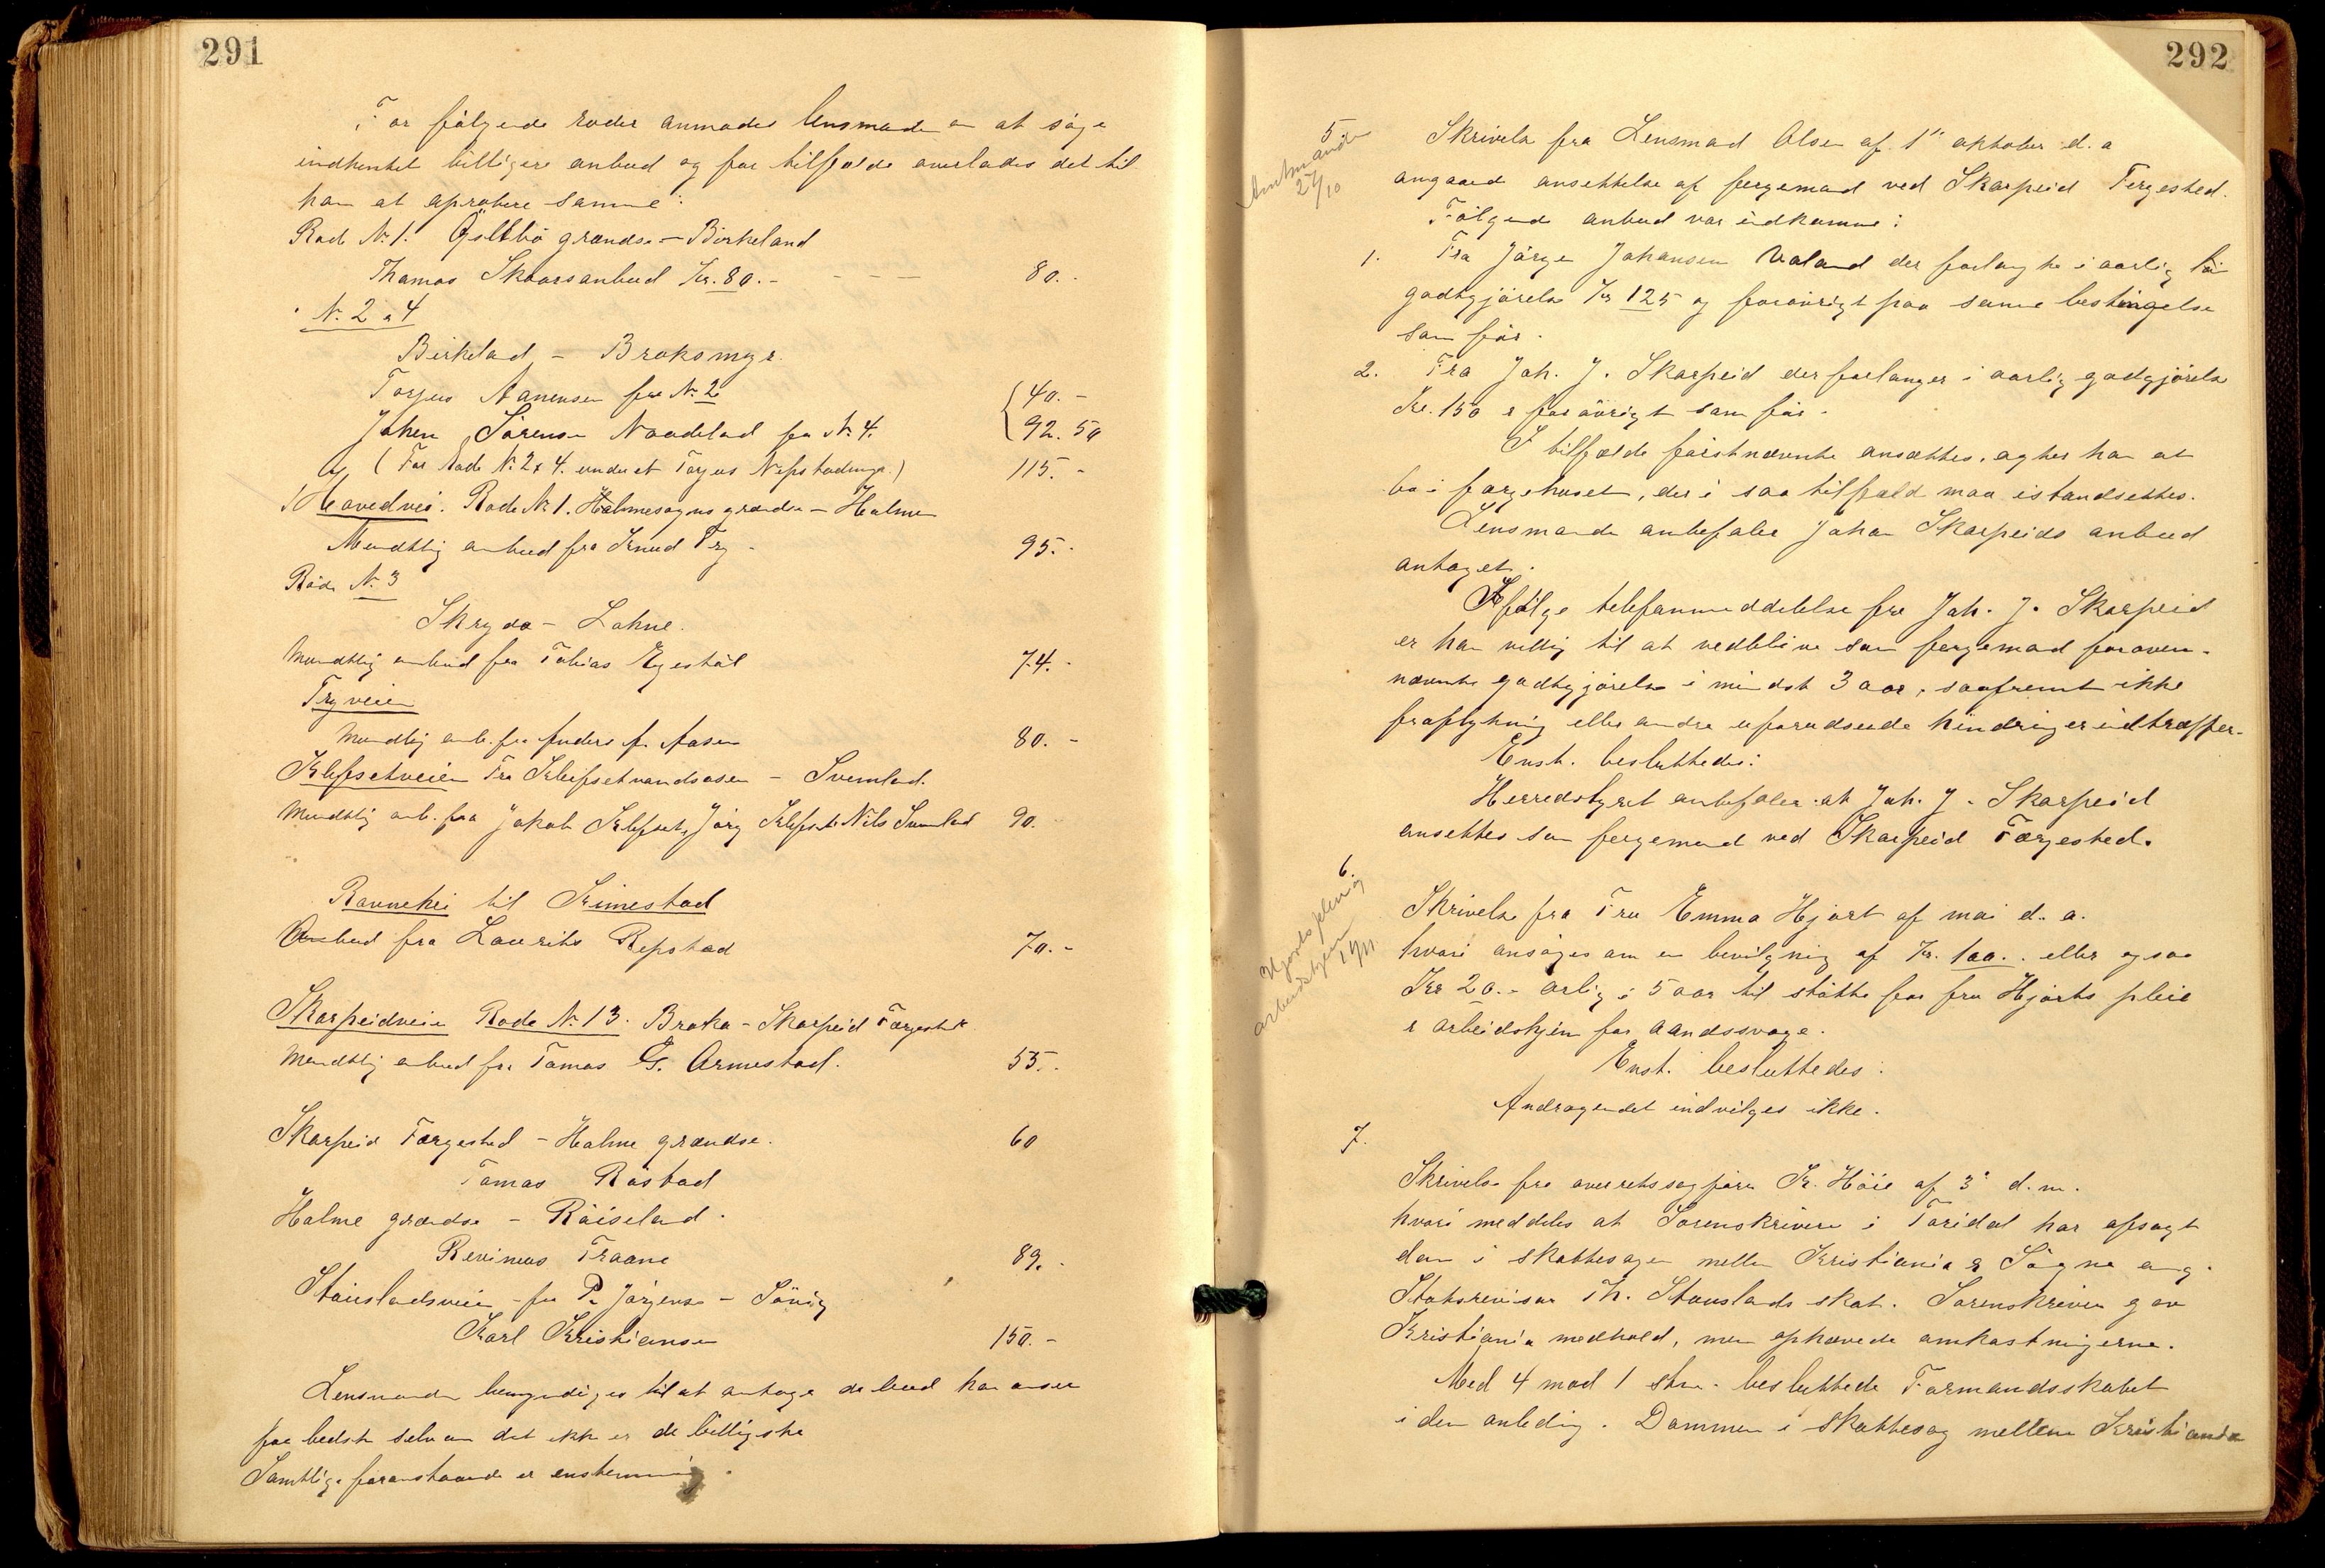 291
For følgende roder anmodes lensmanden om at søge
indhentet billigere anbud og for tilfælde overlades det til
ham at aprobere samme:
Rode No 1. grændse - Birkeland
Thomas Skaars anbud Kr. 80.- - - - 80.-
No 2 & 4
Birkeland - Broksmyr.
Torjus Aanensen for No 2 40.-
Johan Sørensen Naadeland for No 4. 92.50
(For Rode No 2 & 4. Torjus Repstad) 115.-
Hovedvei. Rode No 1. Holmesogns grændse - Holme
Mundtlig anbud fra Knud Try - 95.-
Rode No 3
Skryda - Lohne.
Mundtlig anbud fra Tobias Egestøl 74.-
Tryveien
Mundtlig anb. fra Anders Aasen 80.-
Klepsetveien Fra Klepsetvandsosen - Svenland.
Mundtlig anb. fra Jakob Klepset, Jørg Klepset & Nils Svenland 90.
Ravnehei til Kimestad
Anbud fra Laurits Repstad 70.-
Skarpeidveien Rode No 13. Broka - Skarpeid Færgested
Mundtlig anbud fra Tomas G. Ormestad. 55.-
Skarpeid Færgested - Holme grændse. 60
Tomas Røstad
Holme grændse - Røiseland.
Revinius Traane 89.-
Stouslandsveien - fra P. Jørgensen - Søvig
Karl Kristiansen 150.-
Lensmanden bemyndiges til at antage de bud han anser
for bedst selv om det ikke er de billigste
Samtlige foranstaaende er enstemmig.
292
5 Skrivelse fra Lensmand Olsen af 1ste oktober d. a
Amtmanden
27/10
angaaende ansettelse af fergemand ved Skarpeid Fergested.
Følgende anbud var indkomne:
1. Fra Jørgen Johansen Valand der forlangte i aarlig
godtgjørelse Kr 125 og forøvrigt paa samme betingelse
som før.
2. Fra Joh. J. Skarpeid der forlanger i aarlig godgjørelse
Kr. 150 & forøvrigt som før.
I tilfælde førstnævnte ansættes, agter han at
bo i færgehuset, der i saa tilfæld maa istandsettes.
Lensmanden anbefaler Johan Skarpeids anbud
antaget.
Ifølge telefonmeddelelse fra Joh. J. Skarpeid
er han villig til at vedblive som fergemand for oven-
nævnte godtgjørelse i mindst 3 aar, saafremt ikke
fraflytning eller andre uforudseede hindringer indtræffer.
Enst. besluttedes:
Herredstyret anbefaler at Joh. J. Skarpeid
ansettes som fergemand ved Skarpeid Færgested.
6.
Hjorts pleie og
arbeidshjem
Skrivelse fra Fru Emma Hjort af mai d. a.
hvori ansøges om en bevilgning af Kr. 100.- eller ogsaa
Kr 20.- årlig i 5 aar til støtte for fru Hjorts pleie
& arbeidshjem for aandssvage.
Enst. besluttedes:
Andragendet indvilges ikke.
7.
Skrivelse fra overretssagfører Kr. Høie af 3' d. m.
hvori meddeles at Sorenskriveren i Toridal har afsagt
dom i skattesagen mellem Kristiania & Søgne ang.
Statsrevisor Th. Stouslands skat. Sorenskriveren gav
Kristiania medhold, men ophævede omkostningerne.
Med 4 mod 1 stm. besluttede Formandsskabet
i den anledning. Dommen i skattesag mellem Kristiania